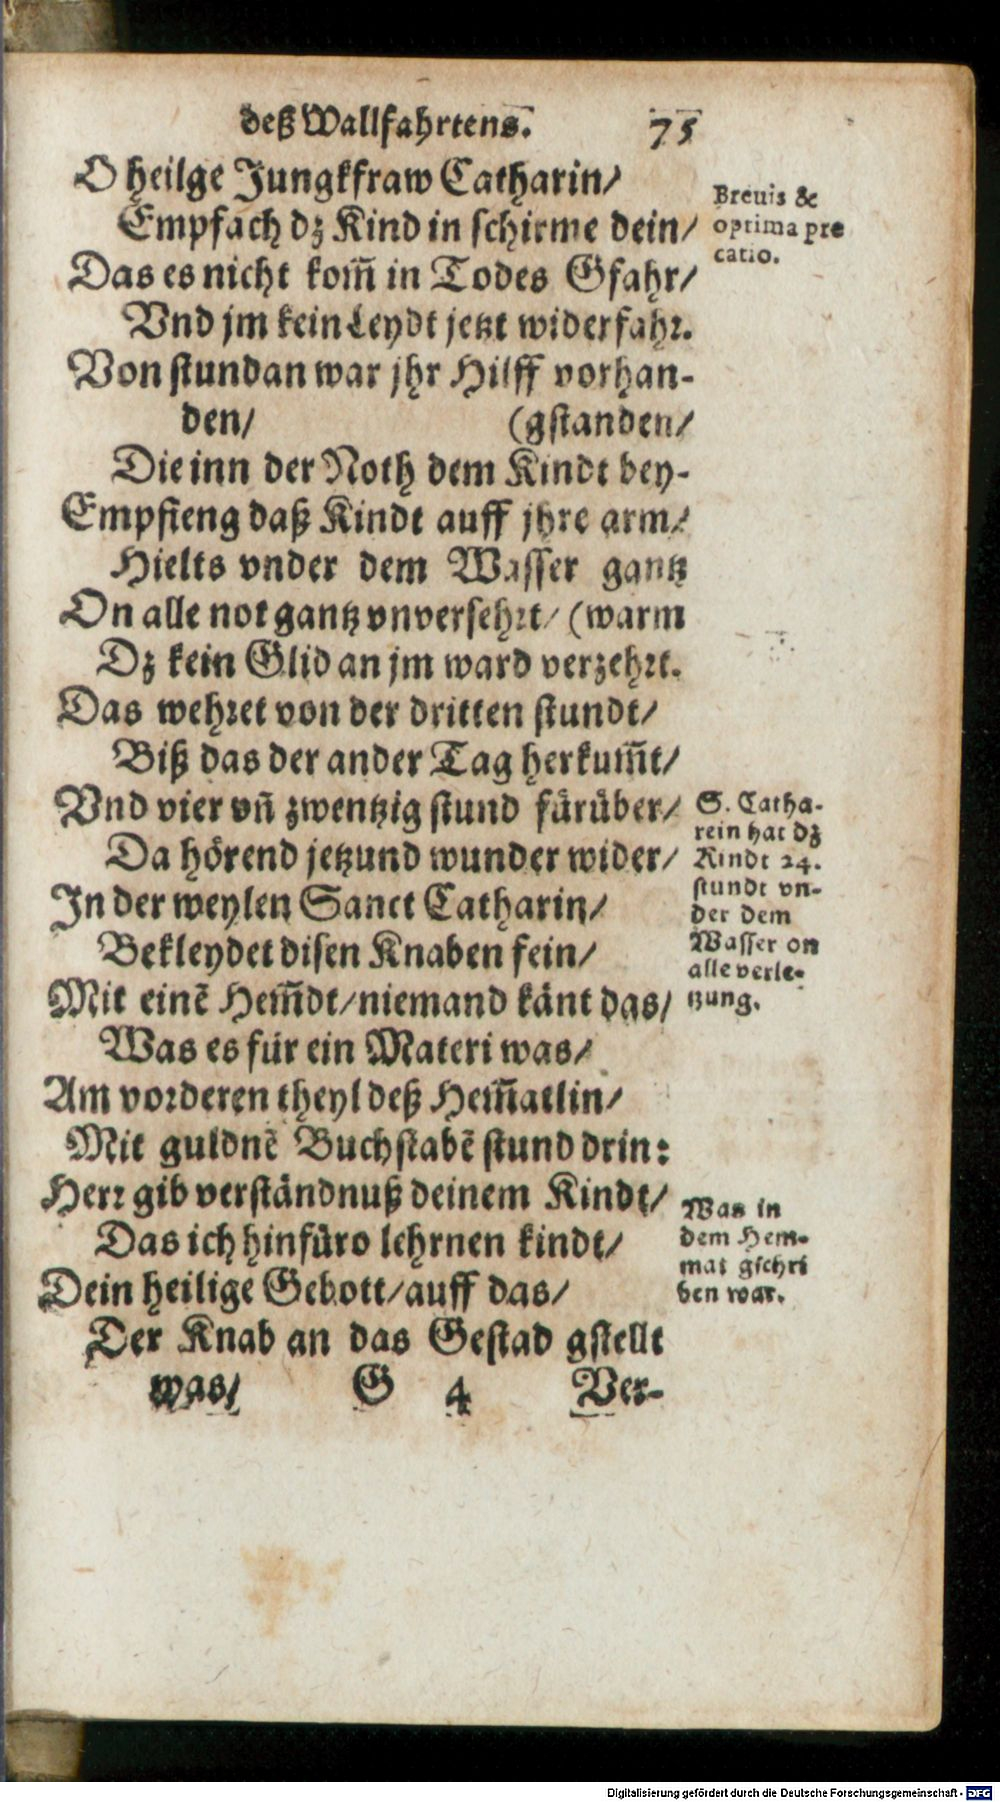 deß Wallfahrtens. 75
O heilge Jungkfraw Catharin/
Empfach dz Kind in schirme dein/
Das es nicht kom̃ in Todes Gfahr/
Vnd jm kein Leydt jetzt widerfahr.
Von stundan war jhr Hilff vorhan-
den/ (gstanden/
Die inn der Noth dem Kindt bey-
Empfieng daß Kindt auff jhre arm/
Hielts vnder dem Wasser gantz
On alle not gantz vnversehrt/ (warm
Dz kein Glid an jm ward verzehrt.
Das wehret von der dritten stundt/
Biß das der ander Tag herkum̃t/
Vnd vier vñ zwentzig stund fürüber/
Da hörend jetzund wunder wider/
In der weylen Sanct Catharin/
Bekleydet disen Knaben fein/
Mit einẽ Hem̃dt/niemand känt das/
Was es für ein Materi was/
Am vorderen theyl deß Hem̃atlin/
Mit guldnẽ Buchstabẽ stund drin:
Herr gib verständnuß deinem Kindt/
Das ich hinfüro lehrnen kindt/
Dein heilige Gebott/auff das/
Der Knab an das Gestad gstellt
was/ G 4 Ver-
Breuis &
optima pre
catio.
S. Catha-
rein hat dz
Kindt 24.
stundt vn-
der dem
Wasser on
alle verle-
tzung.
Was in
dem Hem-
mat gschri
ben war.
Digitalisierung gefördert durch die Deutsche Forschungsgemeinschaft - DFG